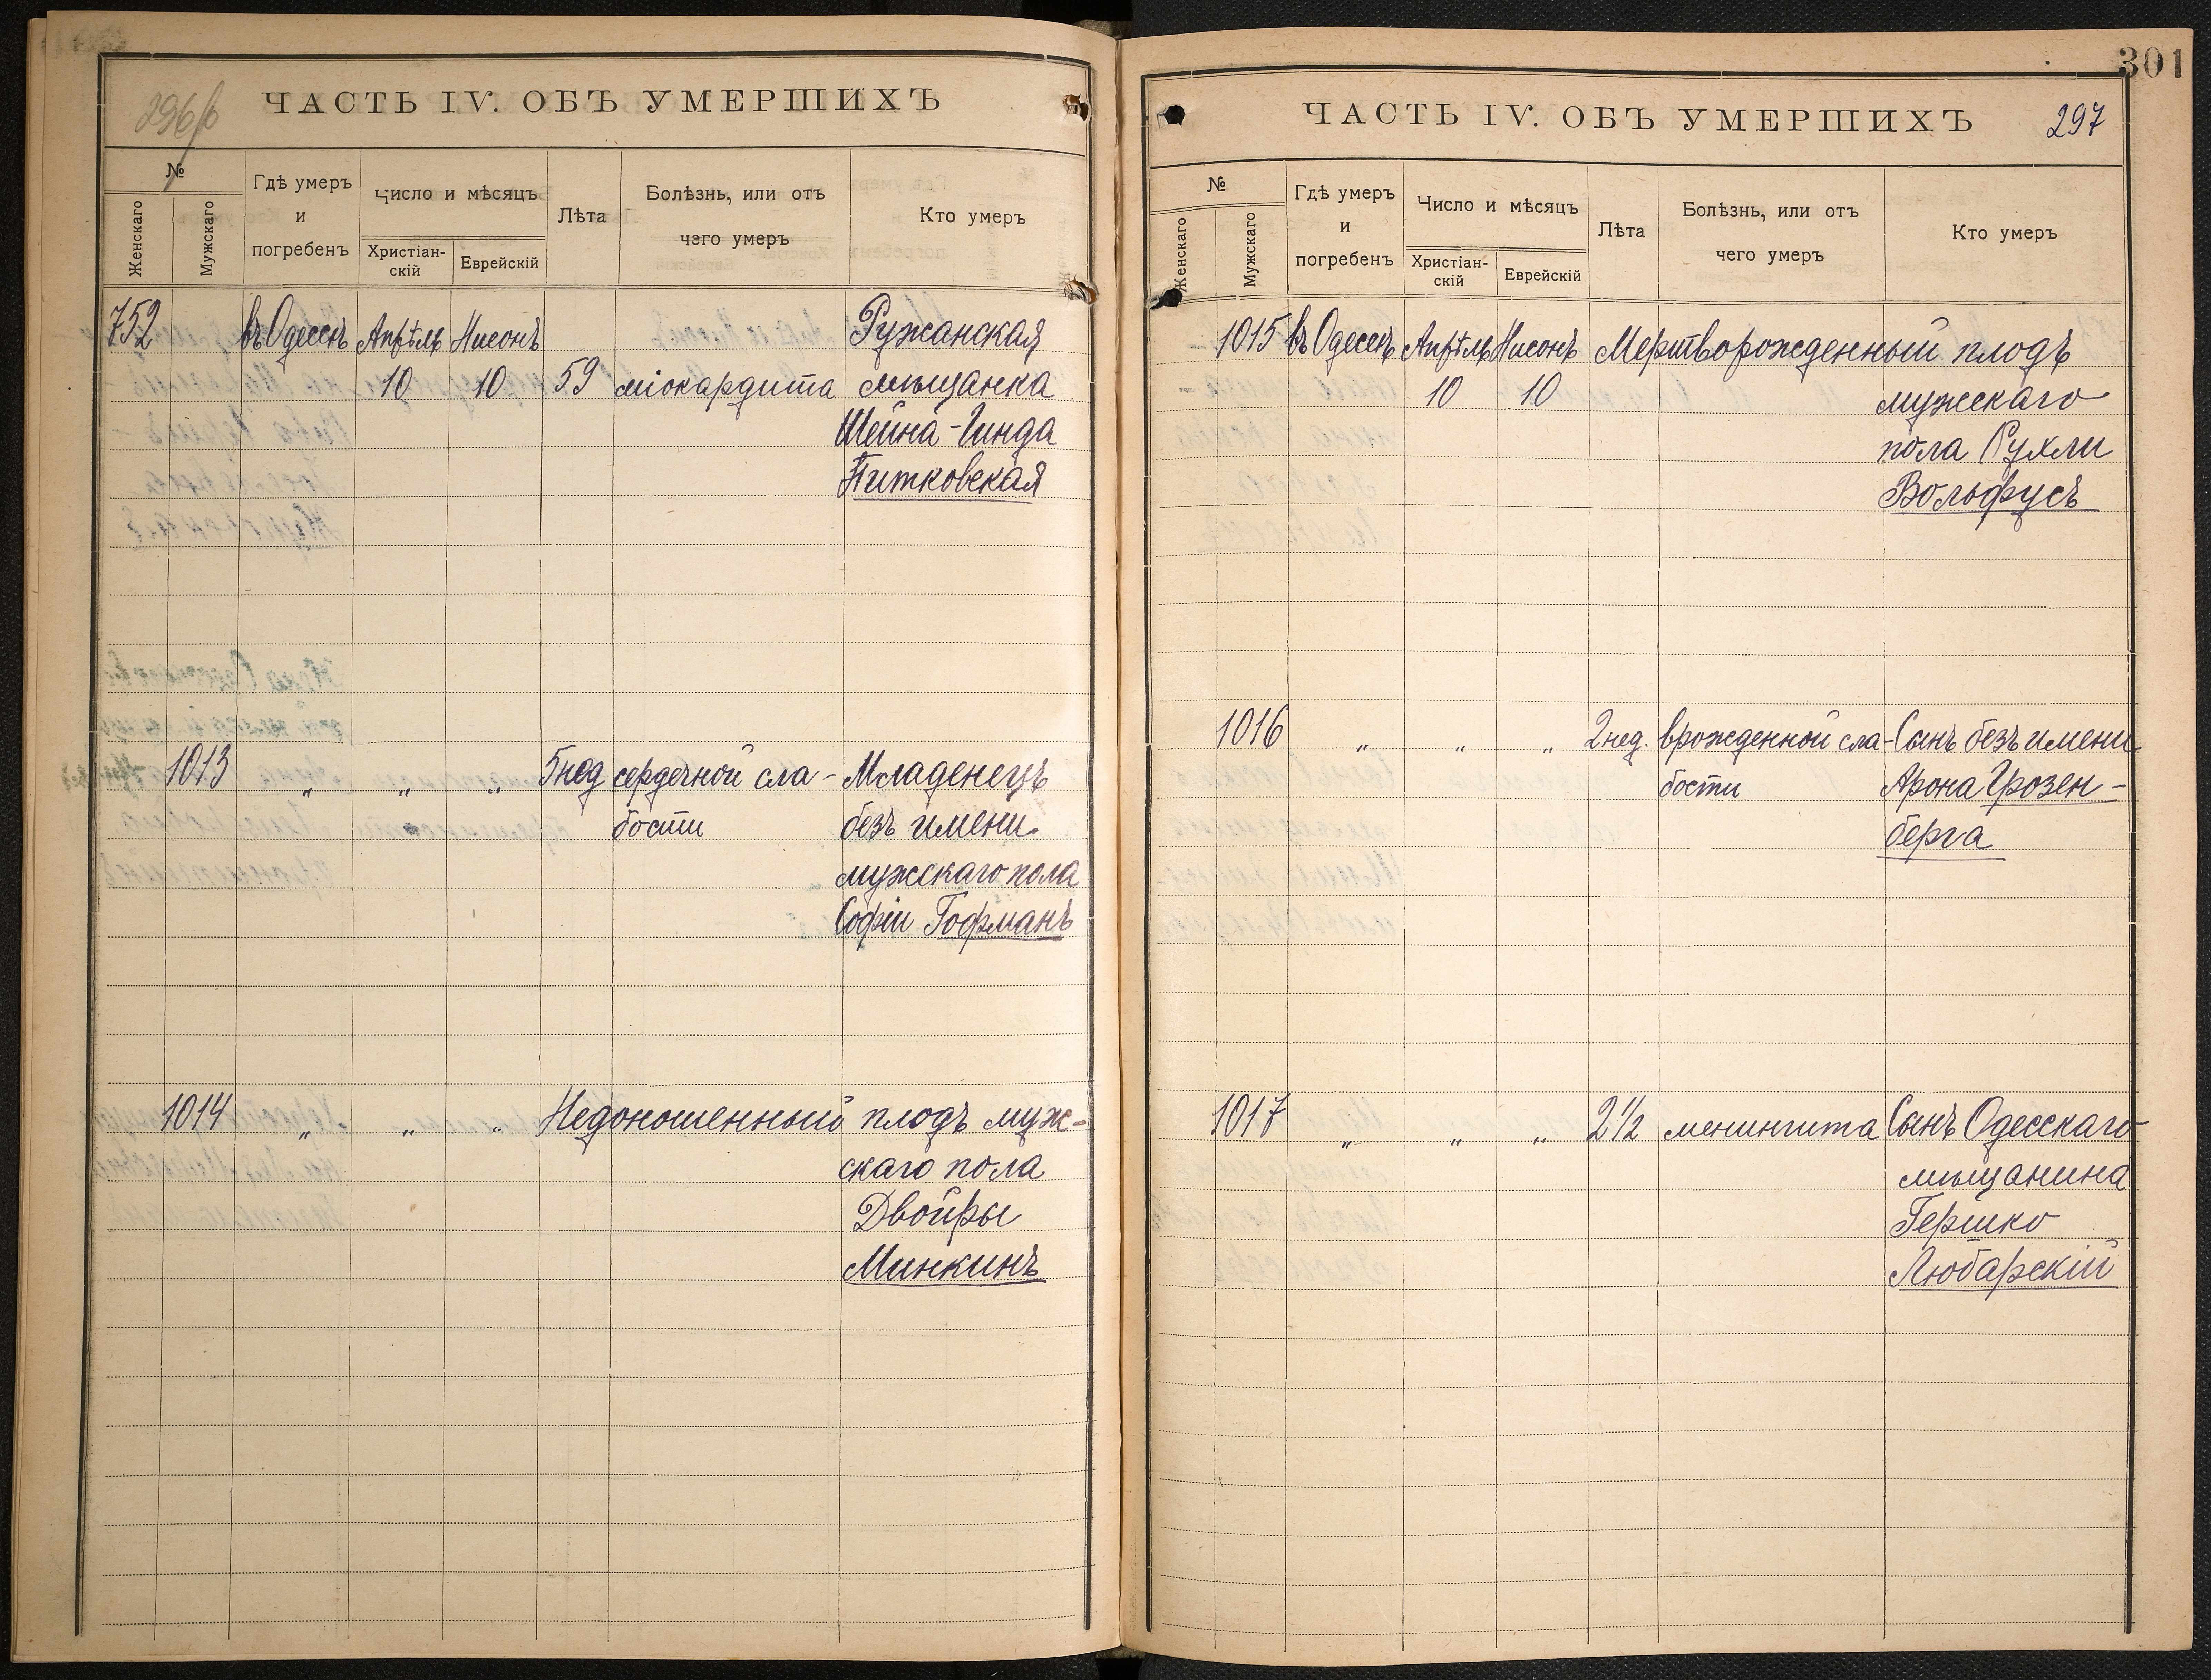 296/б
ЧАСТЬ IV. ОБЪ УМЕРШИХЪ
№
Женскаго
Мужскаго
Гдѣ умеръ
и
погребенъ
Число и мѣсяцъ
Христіан-
скій
Еврейскій
Лѣта
Болѣзнь, или отъ
чего умеръ
Кто умеръ
752 въ Одессѣ Апрѣль Нисонъ Ружанская
10 10 59 міокардита мѣщанка
Шейна-Гинда
Питковская
1013 „ „ „ 5 нед сердечной сла- Младенецъ
бости безъ имени
мужскаго пола
Софіи Гофманъ
1014 „ „ „ Недоношенный плодъ муж-
скаго пола
Двойры
Минкинъ
301
ЧАСТЬ IV. ОБЪ УМЕРШИХЪ 297
№
Женскаго
Мужскаго
Гдѣ умеръ
и
погребенъ
Число и мѣсяцъ
Христіан-
скій
Еврейскій
Лѣта
Болѣзнь, или отъ
чего умеръ
Кто умеръ
1015 въ Одессѣ Апрѣль Нисонъ Мертворожденный плодъ
10 10 мужскаго
пола Рухли
Вольфусъ
1016 „ „ „ 2 нед. врожденной сла- Сынъ безъ имени
бости Арона Грозен-
берга
1017 „ „ „ 2 1/2 менингита Сынъ Одесскаго
мѣщанина
Гершко
Любарскій